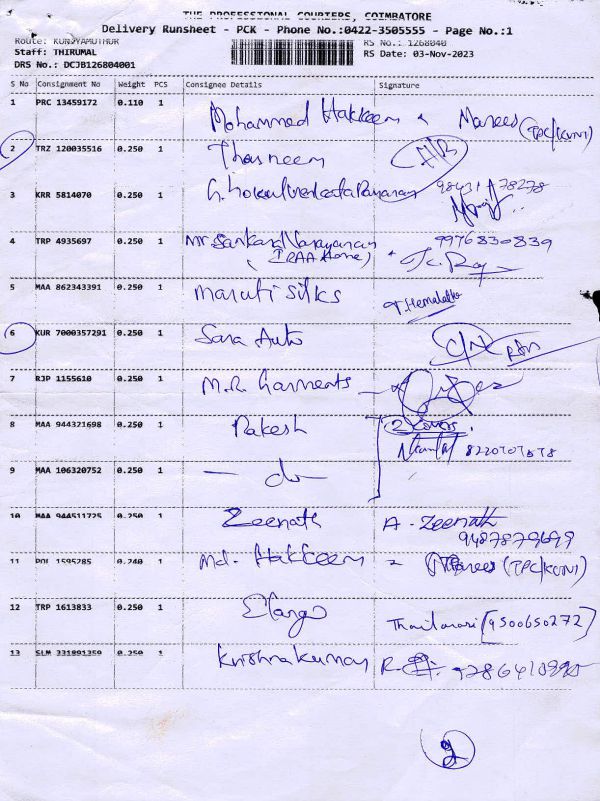 THE PROFESSIONAL COURIERS, COIMBATORE
Delivery Runsheet - PCK - Phone No.:0422-3505555 - Page No.:1
Route: KUNIYAMUTHUR RS No.: 1268040
Staff: THIRUMAL RS Date: 03-Nov-2023
DRS No.: DCJB126804001
S No Consignment No Weight PCS Consignee Details Signature
1 PRC 13459172 0.110 1 Mohammed Hakkeem (TPC/KUNI)
2 TRZ 120035516 0.250 1 Thasneem
3 KRR 5814070 0.250 1
4 TRP 4935697 0.250 1 Mr. Sankara Narayanan 9976830839
(IRAA Home)
5 MAA 862343391 0.250 1 Maruti Silks T. Hemalatha
6 KUR 7000357291 0.250 1 Sara Auto
7 RJP 1155610 0.250 1 M.R. Garments
8 MAA 944321698 0.250 1 Rakesh (2) Covers
9 MAA 106320752 0.250 1 - do -
10 MAA 944511725 0.250 1 Zeenath A. Zeenath
9487879699
11 POL 1595285 0.240 1 Md. Hakkeem (TPC/KUNI)
12 TRP 1613833 0.250 1 Elango [9500650272]
13 SLM 331891359 0.250 1 Krishnakumar
2